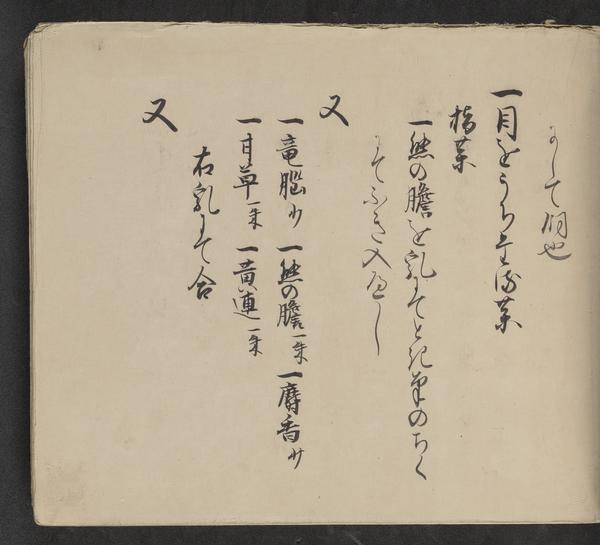 にして用也
一目をうち・・薬
指薬
一熊の膽を乳にてとき筆のちく
にてふき入べし
又
一竜脳少 一熊の膽一朱 一麝香少
一甘草一朱 一黄連一朱
右乳にて合
又